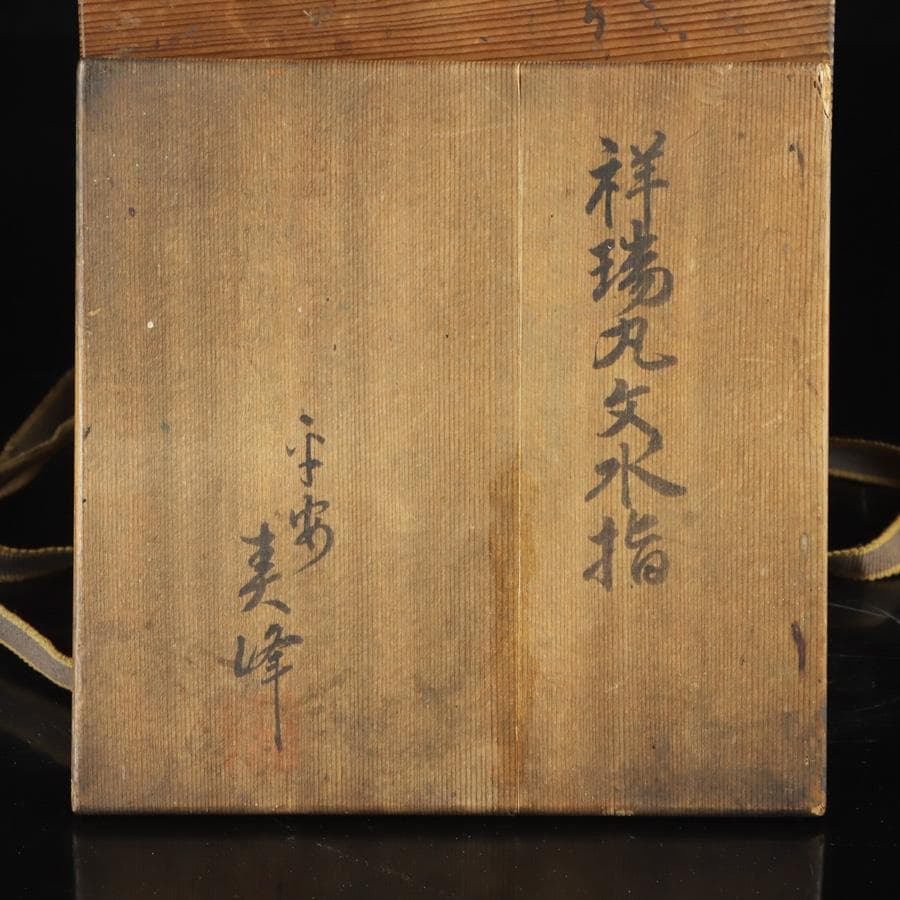 祥瑞丸文水指
平安
美峰